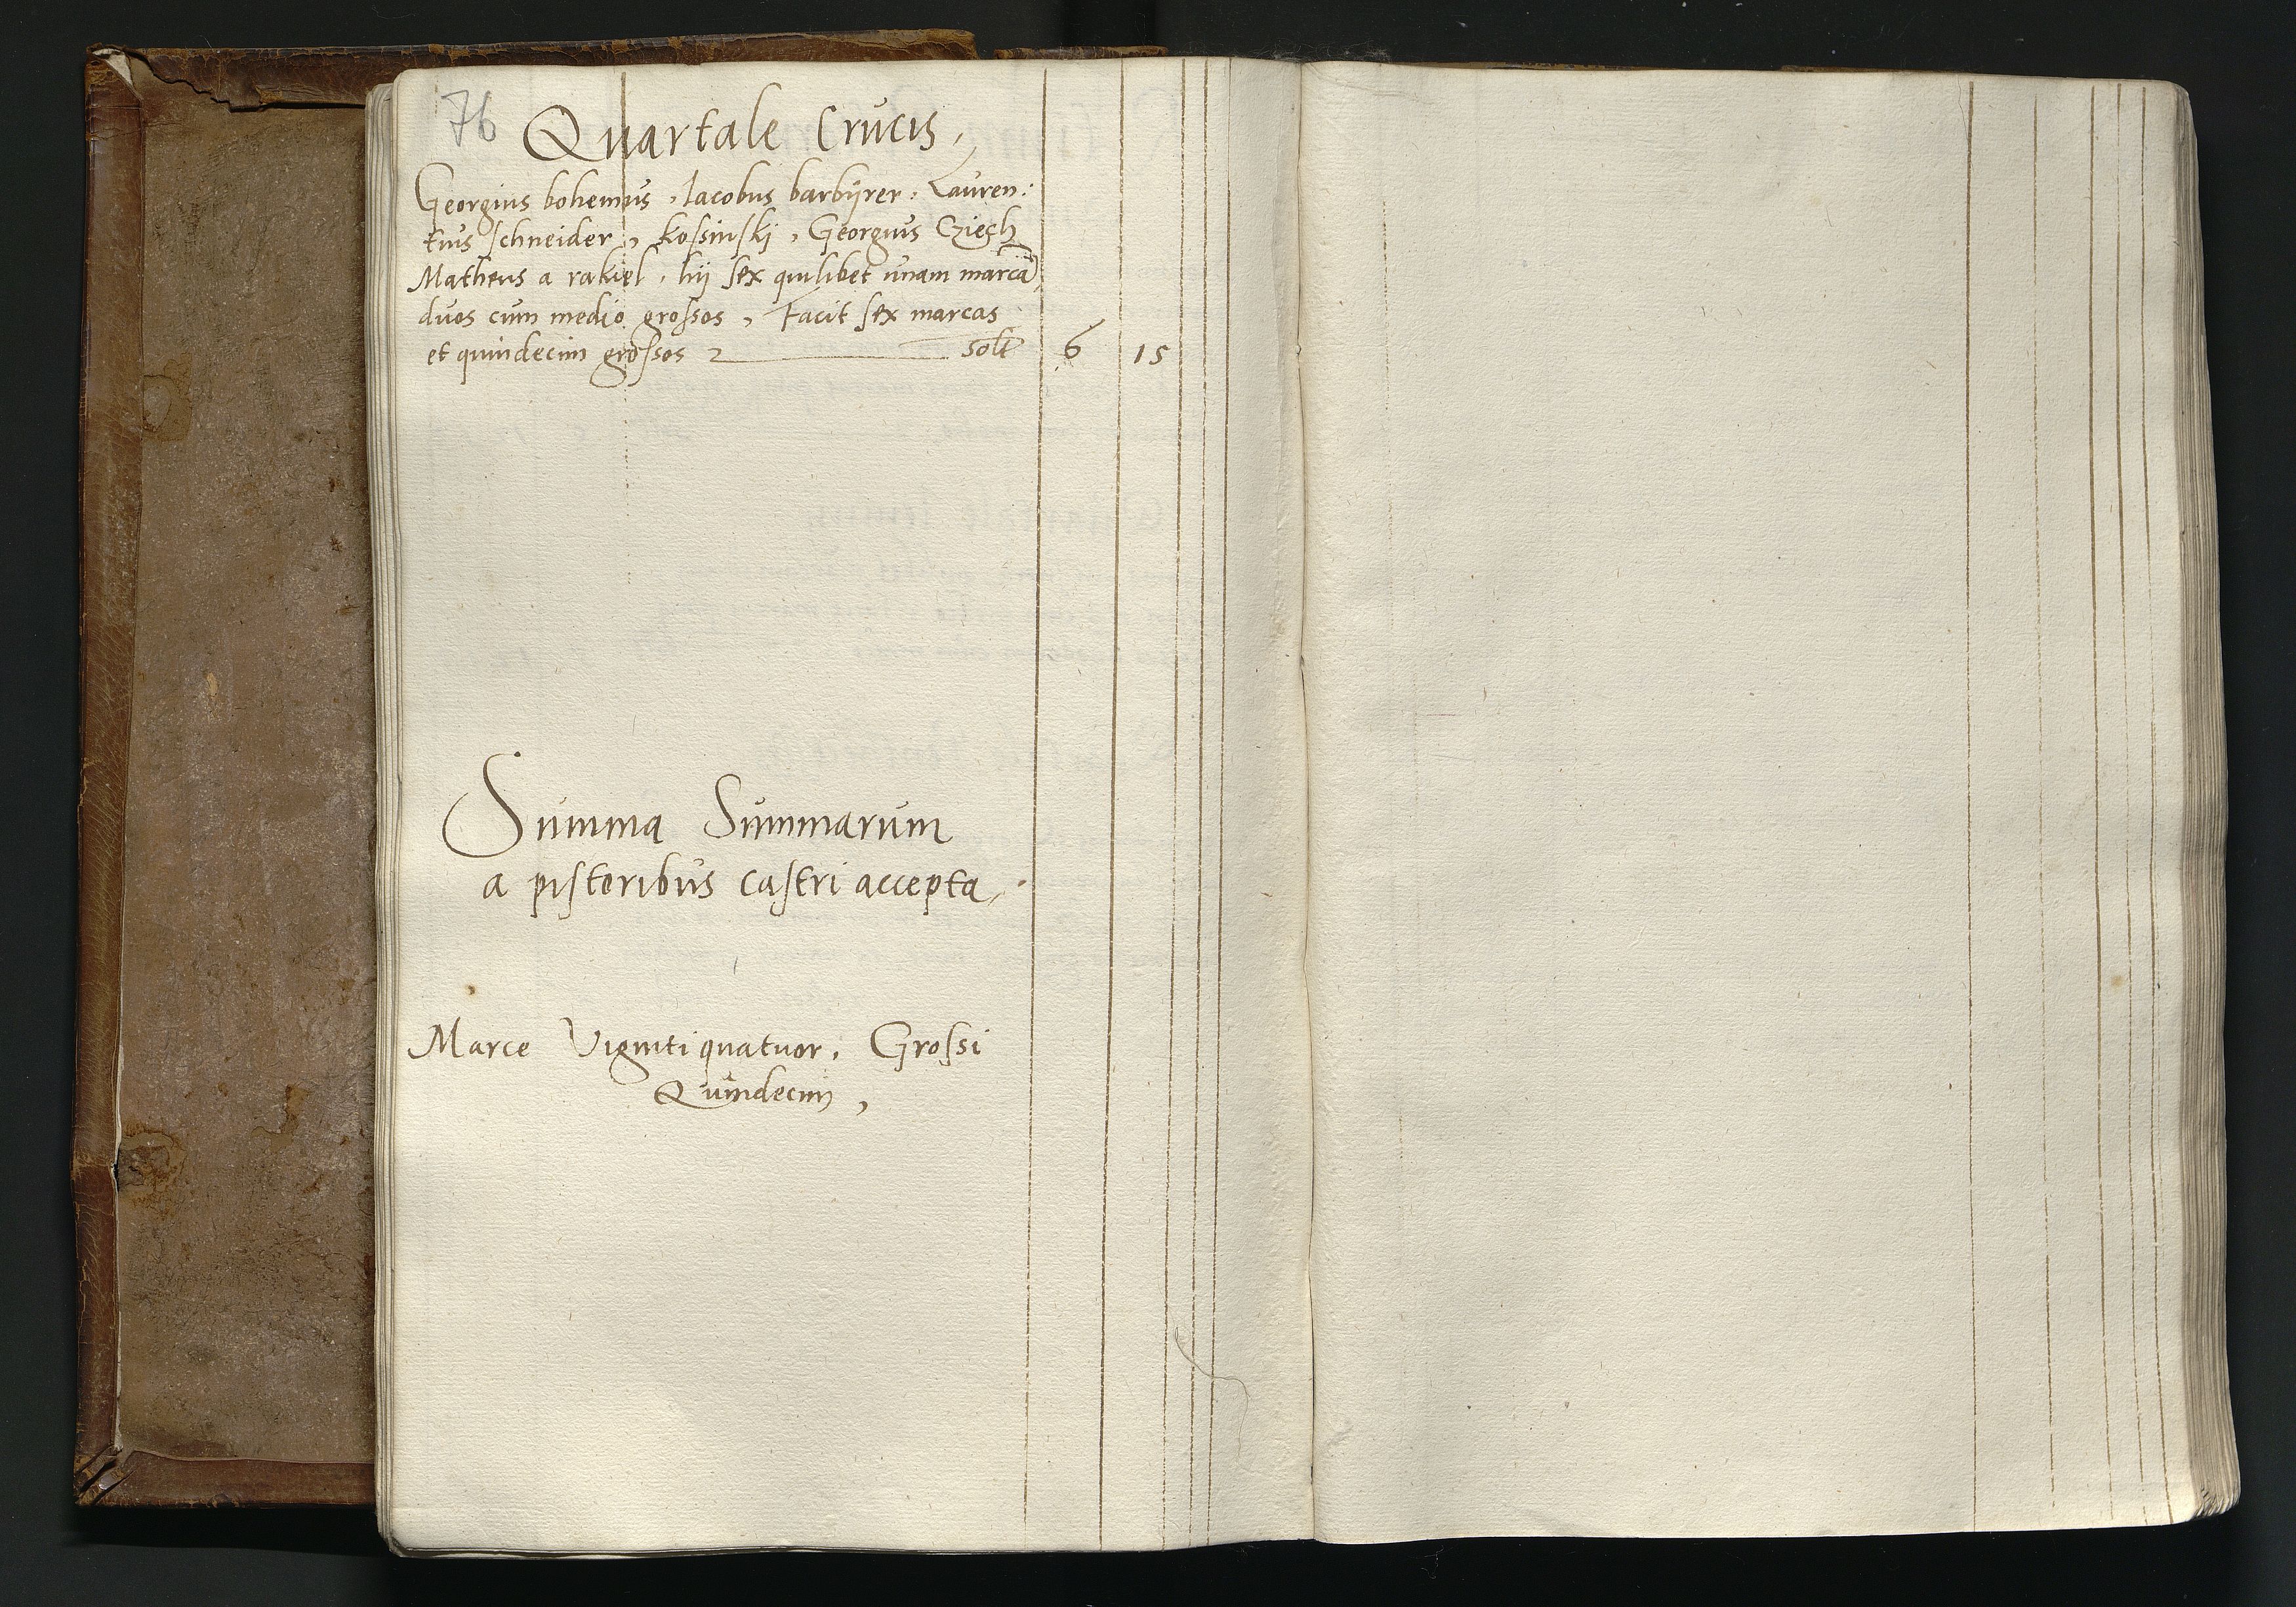 76
Quartale Crucis,
Georgius bohemus, Iacobus barbÿrer, Lauren:
tius schneider, kossinskj, Georgius Cziech
Matheus a rakiel, hij sex quilibet unam marcā,
duos cum medio grossos, Facit sex marcas
et quindecim grossos solt 6 15
Summa Summarum
a pistoribus castri accepta,
Marce Viginti quatuor, Grossi
Quindecim,